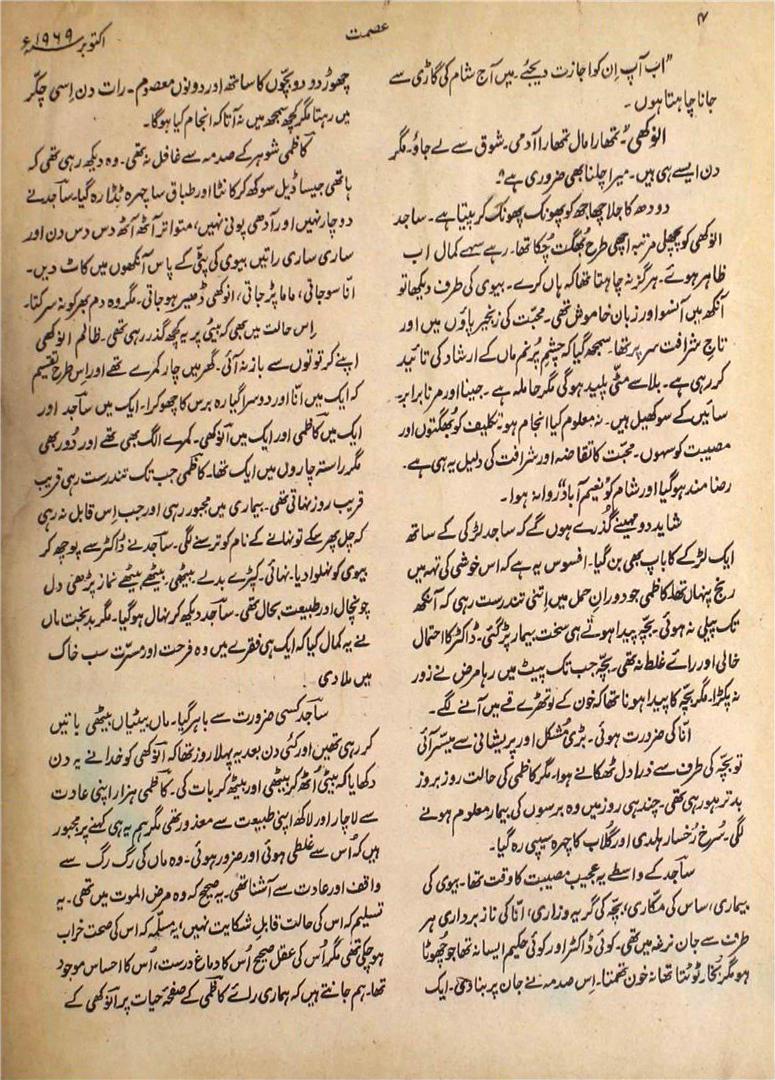 ۴
عصمت
اکتوبر ۱۹۶۹ء
"اب آپ اِن کو اجازت دیجئے۔ میں آج شام کی گاڑی سے
جانا چاہتا ہوں۔
انوکھی"۔ تمھارا مال تمھارا آدمی۔ شوق سے لے جاؤ۔ مگر
دن ایسے ہی ہیں۔ میرا چلنا بھی ضروری ہے"۔
دودھ کا جلا چھاچھ کو پھونک پھونک کر پیتا ہے۔ ساجد
انوکھی کو پچھلی مرتبہ اچھی طرح بُھگت چُکا تھا۔ رہے سہے کمال اب
ظاہر ہوئے۔ ہرگز نہ چاہتا تھا کہ ہاں کرے۔ بیوی کی طرف دیکھا تو
آنکھ میں آنسو اور زبان خاموش تھی۔ محبّت کی زنجیر پاؤں میں اور
تاجِ شرافت سر پر تھا۔ سمجھ گیا کہ چشمِ پُرنم ماں کے ارشاد کی تائید
کر رہی ہے۔ بلا سے مٹّی پلید ہوگی مگر حاملہ ہے۔ جینا اور مرنا برابر۔
سائیں کے سو کھیل ہیں۔ نہ معلوم کیا انجام ہو۔ تکلیف کو بُھگتوں اور
مصیبت کو سہوں۔ محبّت کا تقاضہ اور شرافت کی دلیل یہ ہی ہے۔
رضامند ہوگیا اور شام کو "نسیم آباد" روانہ ہوا۔
شاید دو مہینے گُذرے ہوں گے کہ ساجد لڑکی کے ساتھ
ایک لڑکے کا باپ بھی بن گیا۔ افسوس یہ ہے کہ اس خوشی کی تہہ میں
رنج پنہاں تھا۔ کاظمی جو دورانِ حمل میں اِتنی تندرست رہی کہ آنکھ
تک میلی نہ ہوئی۔ بچّہ پیدا ہوتے ہی سخت بیمار پڑ گئی۔ ڈاکٹر کا احتمال
خالی اور رائے غلط نہ تھی۔ بچّہ جب تک پیٹ میں رہا مرض نے زور
نہ پکڑا۔ مگر بچّہ کا پیدا ہونا تھا کہ خون کے لوتھڑے قے میں آنے لگے۔
اَنّا کی ضرورت ہوئی۔ بڑی مُشکل اور پریشانی سے میسّر آئی
تو بچّہ کی طرف سے ذرا دل ٹھکانے ہوا۔ مگر کاظمی کی حالت روز بروز
بدتر ہو رہی تھی۔ چند ہی روز میں وہ برسوں کی بیمار معلوم ہونے
لگی۔ سُرخ رُخسار ہلدی اور گُلاب کا چہرہ سیپی رہ گیا۔
ساجد کے واسطے یہ عجیب مصیبت کا وقت تھا۔ بیوی کی
بیماری، ساس کی مکّاری، بچّہ کی گریہ وزاری، اَنّا کی ناز برداری ہر
طرف سے جان نرغہ میں تھی۔ کوئی ڈاکٹر اور کوئی حکیم ایسا نہ تھا جو چُھوٹا
ہو مگر بُخار ٹوٹتا تھا نہ خون تھمتا۔ اِس صدمہ نے جان پر بنا دی۔ ایک
چھوڑ دو دو بچّوں کا ساتھ اور دونوں معصوم۔ رات دن اِسی چکّر
میں رہتا مگر کچھ سمجھ میں نہ آتا کہ انجام کیا ہوگا۔
کاظمی شوہر کے صدمہ سے غافل نہ تھی۔ وہ دیکھ رہی تھی کہ
ہاتھی جیسا ڈیل سوکھ کر کانٹا اور طباق سا چہرہ ٹِڈّا رہ گیا۔ ساجد نے
دو چار نہیں اور آدھی پونی نہیں، متواتر آٹھ آٹھ دس دس دن اور
ساری ساری راتیں بیوی کی پٹّی کے پاس آنکھوں میں کاٹ دیں۔
اَنّا سو جاتی، ماما پڑ جاتی، انوکھی ڈھیر ہو جاتی۔ مگر وہ دم بھر کو نہ سرکتا۔
اِس حالت میں بھی کہ بیٹی پر یہ کچھ گذر رہی تھی۔ ظالم انوکھی
اپنے کرتوتوں سے باز نہ آئی۔ گھر میں چار کمرے تھے اور اِس طرح تقسیم
کہ ایک میں اَنّا اور دوسرا گیارہ برس کا چھوکرا۔ ایک میں ساجد اور
ایک میں کاظمی اور ایک میں انوکھی۔ کمرے الگ بھی تھے اور دُور بھی
مگر راستہ چاروں میں ایک تھا۔ کاظمی جب تک تندرست رہی قریب
قریب روز نہاتی تھی۔ بیماری میں مجبور رہی اور جب اِس قابل نہ رہی
کہ چل پھر سکے تو نہانے کے نام کو ترسنے لگی۔ ساجد نے ڈاکٹر سے پوچھ کر
بیوی کو نہلوا دیا۔ نہائی۔ کپڑے بدلے بیٹھی۔ بیٹھے بیٹھے نماز پڑھی دل
چونچال اور طبیعت بحال تھی۔ ساجد دیکھ کر نہال ہوگیا۔ مگر بدبخت ماں
نے یہ کمال کیا کہ ایک ہی فقرے میں وہ فرحت اور مسرّت سب خاک
میں ملا دی۔
ساجد کسی ضرورت سے باہر گیا۔ ماں بیٹیاں بیٹھی باتیں
کر رہی تھیں اور کئی دن بعد یہ پہلا روز تھا کہ انوکھی کو خدا نے یہ دن
دکھایا کہ بیٹی اُٹھ کر بیٹھی اور بیٹھ کر بات کی۔ کاظمی ہزار اپنی عادت
سے لاچار اور لاکھ اپنی طبیعت سے معذور تھی مگر ہم یہ ہی کہنے پر مجبور
ہیں کہ اُس سے غلطی ہوئی اور ضرور ہوئی۔ وہ ماں کی رگ رگ سے
واقف اور عادت سے آشنا تھی۔ یہ صحیح کہ وہ مرض الموت میں تھی۔ یہ
تسلیم کہ اس کی حالت قابلِ شکایت نہیں، یہ مسلّمہ کہ اس کی صحت خراب
ہو چکی تھی مگر اُس کی عقل صحیح اُس کا دماغ درست، اُس کا احساس موجود
تھا۔ ہم جانتے ہیں کہ ہماری رائے کاظمی کے صفحۂ حیات پر انوکھی کے